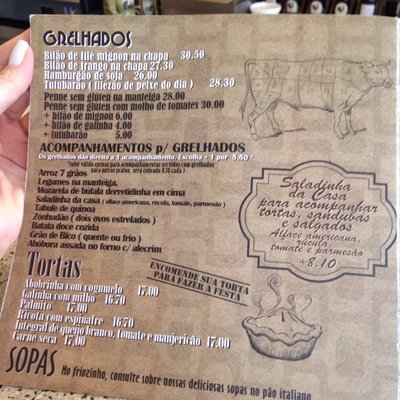 GRELHADOS
Bifão de filé mignon na chapa 30.50
Bifão de frango na chapa 27.30
Hamburgão de soja 26.00
Tulubarão ( filezão de peixe do dia ) 28.30
Penne sem glúten na manteiga 28.00
Penne sem glúten com molho de tomates 30.00
+ bifão de mignon 6.00
+ bifão de galinha 4.00
+ tulubarão 5.00
ACOMPANHAMENTOS p/ GRELHADOS
Os grelhados dão direito a 1 acompanhamento. Escolha + 1 por 5,50 *
*valor válido apenas para acompanhamentos servidos com grelhados
para outros pratos, será cobrado 8.10 cada )
Arroz 7 grãos
Legumes na manteiga
Mozarela de búfala derretidinha em cima
Saladinha da casa ( alface americana, rúcula, tomate, parmesão )
Tabule de quinoa
Zonhudão ( dois ovos estrelados )
Batata doce cozida
Grão de Bico ( quente ou frio )
Abóbora assada no forno c/ alecrim
Saladinha
da Casa
para acompanhar
tortas, sandubas
e salgados
Alface americana,
rúcula,
tomate e parmesão
+8.10
Tortas
ENCOMENDE SUA TORTA
PARA FAZER A FESTA
Abobrinha com cogumelo 17.00
Galinha com milho 16.70
Palmito 17.00
Ricota com espinafre 16.70
Integral de queijo branco, tomate e manjericão 17.00
Carne seca 17.00
SOPAS No friozinho, consulte sobre nossas deliciosas sopas no pão italiano